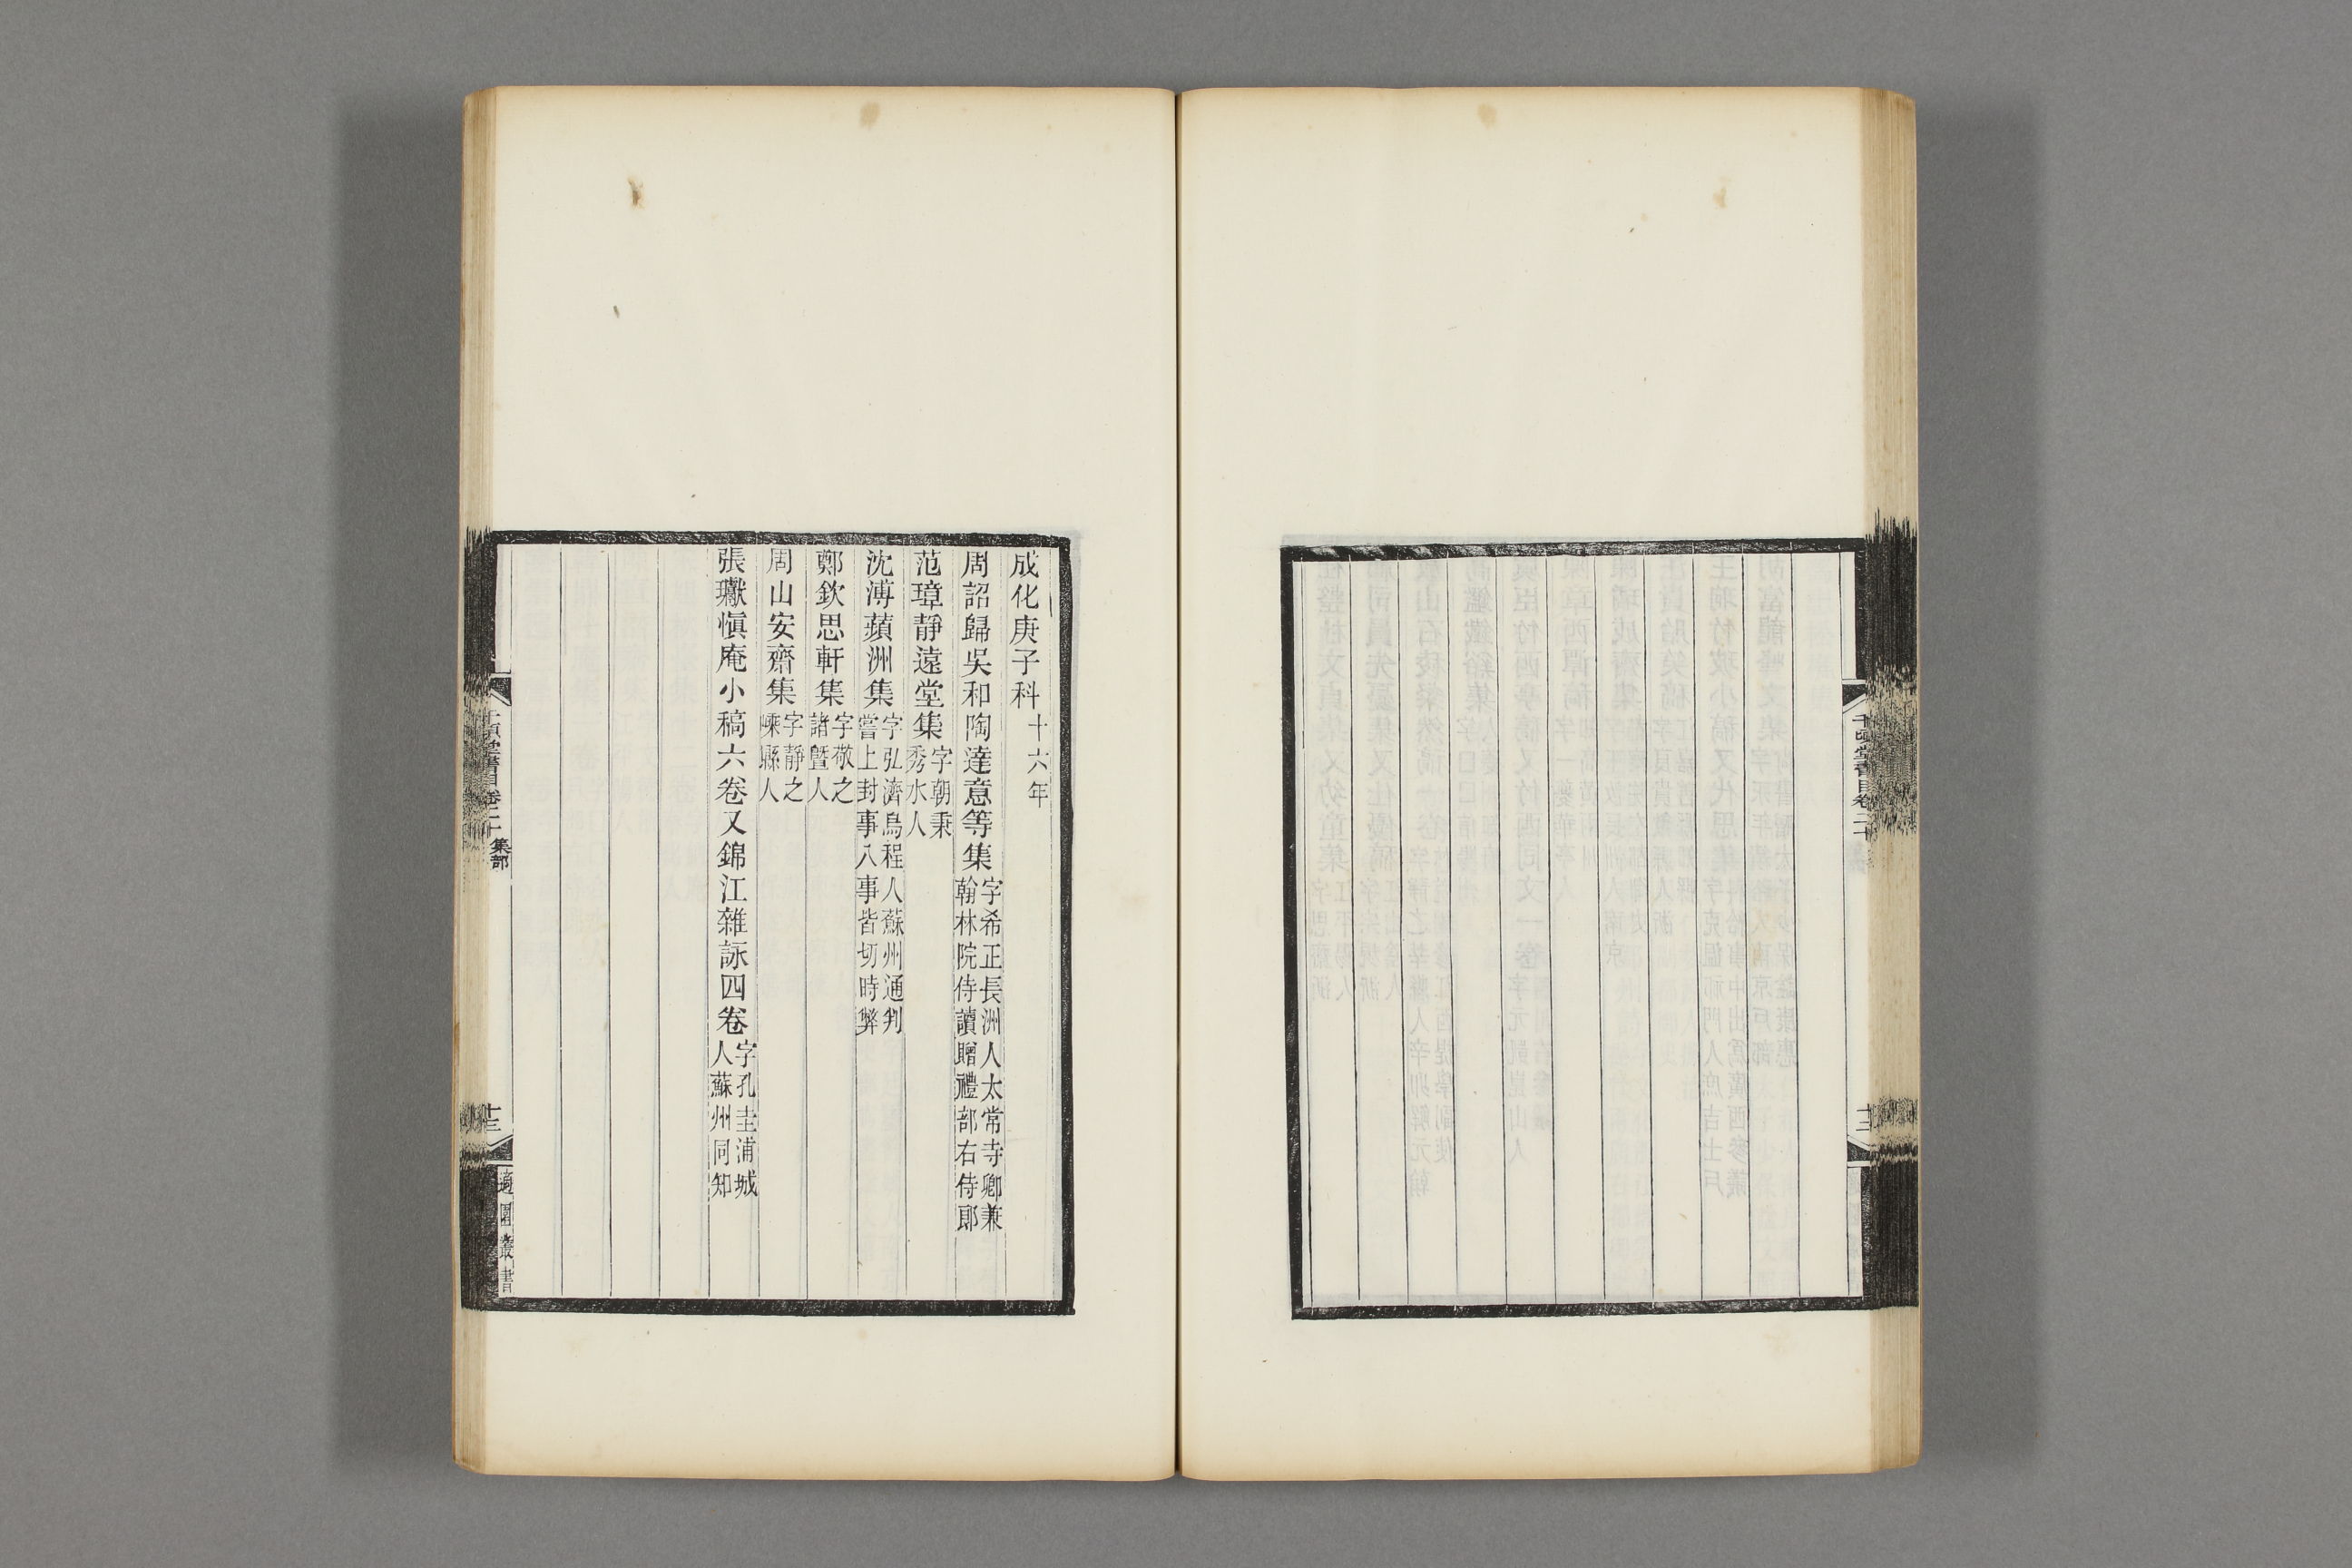 千頃堂書目卷二十
十二
成化庚子科十六年
周詔歸吳和陶達意等集字希正長洲人太常寺卿兼翰林院侍讀贈禮部右侍郎
范璋靜遠堂集字朝秉秀水人
沈溥蘋洲集字弘濟烏程人蘇州通判嘗上封事八事皆切時弊
鄭欽思軒集字敬之諸曁人
周山安齋集字靜之嵊縣人
張瓛愼庵小稿六卷又錦江雜詠四卷字孔圭浦城人蘇州同知
千頃堂書目卷二十 集部
十三
適園叢書